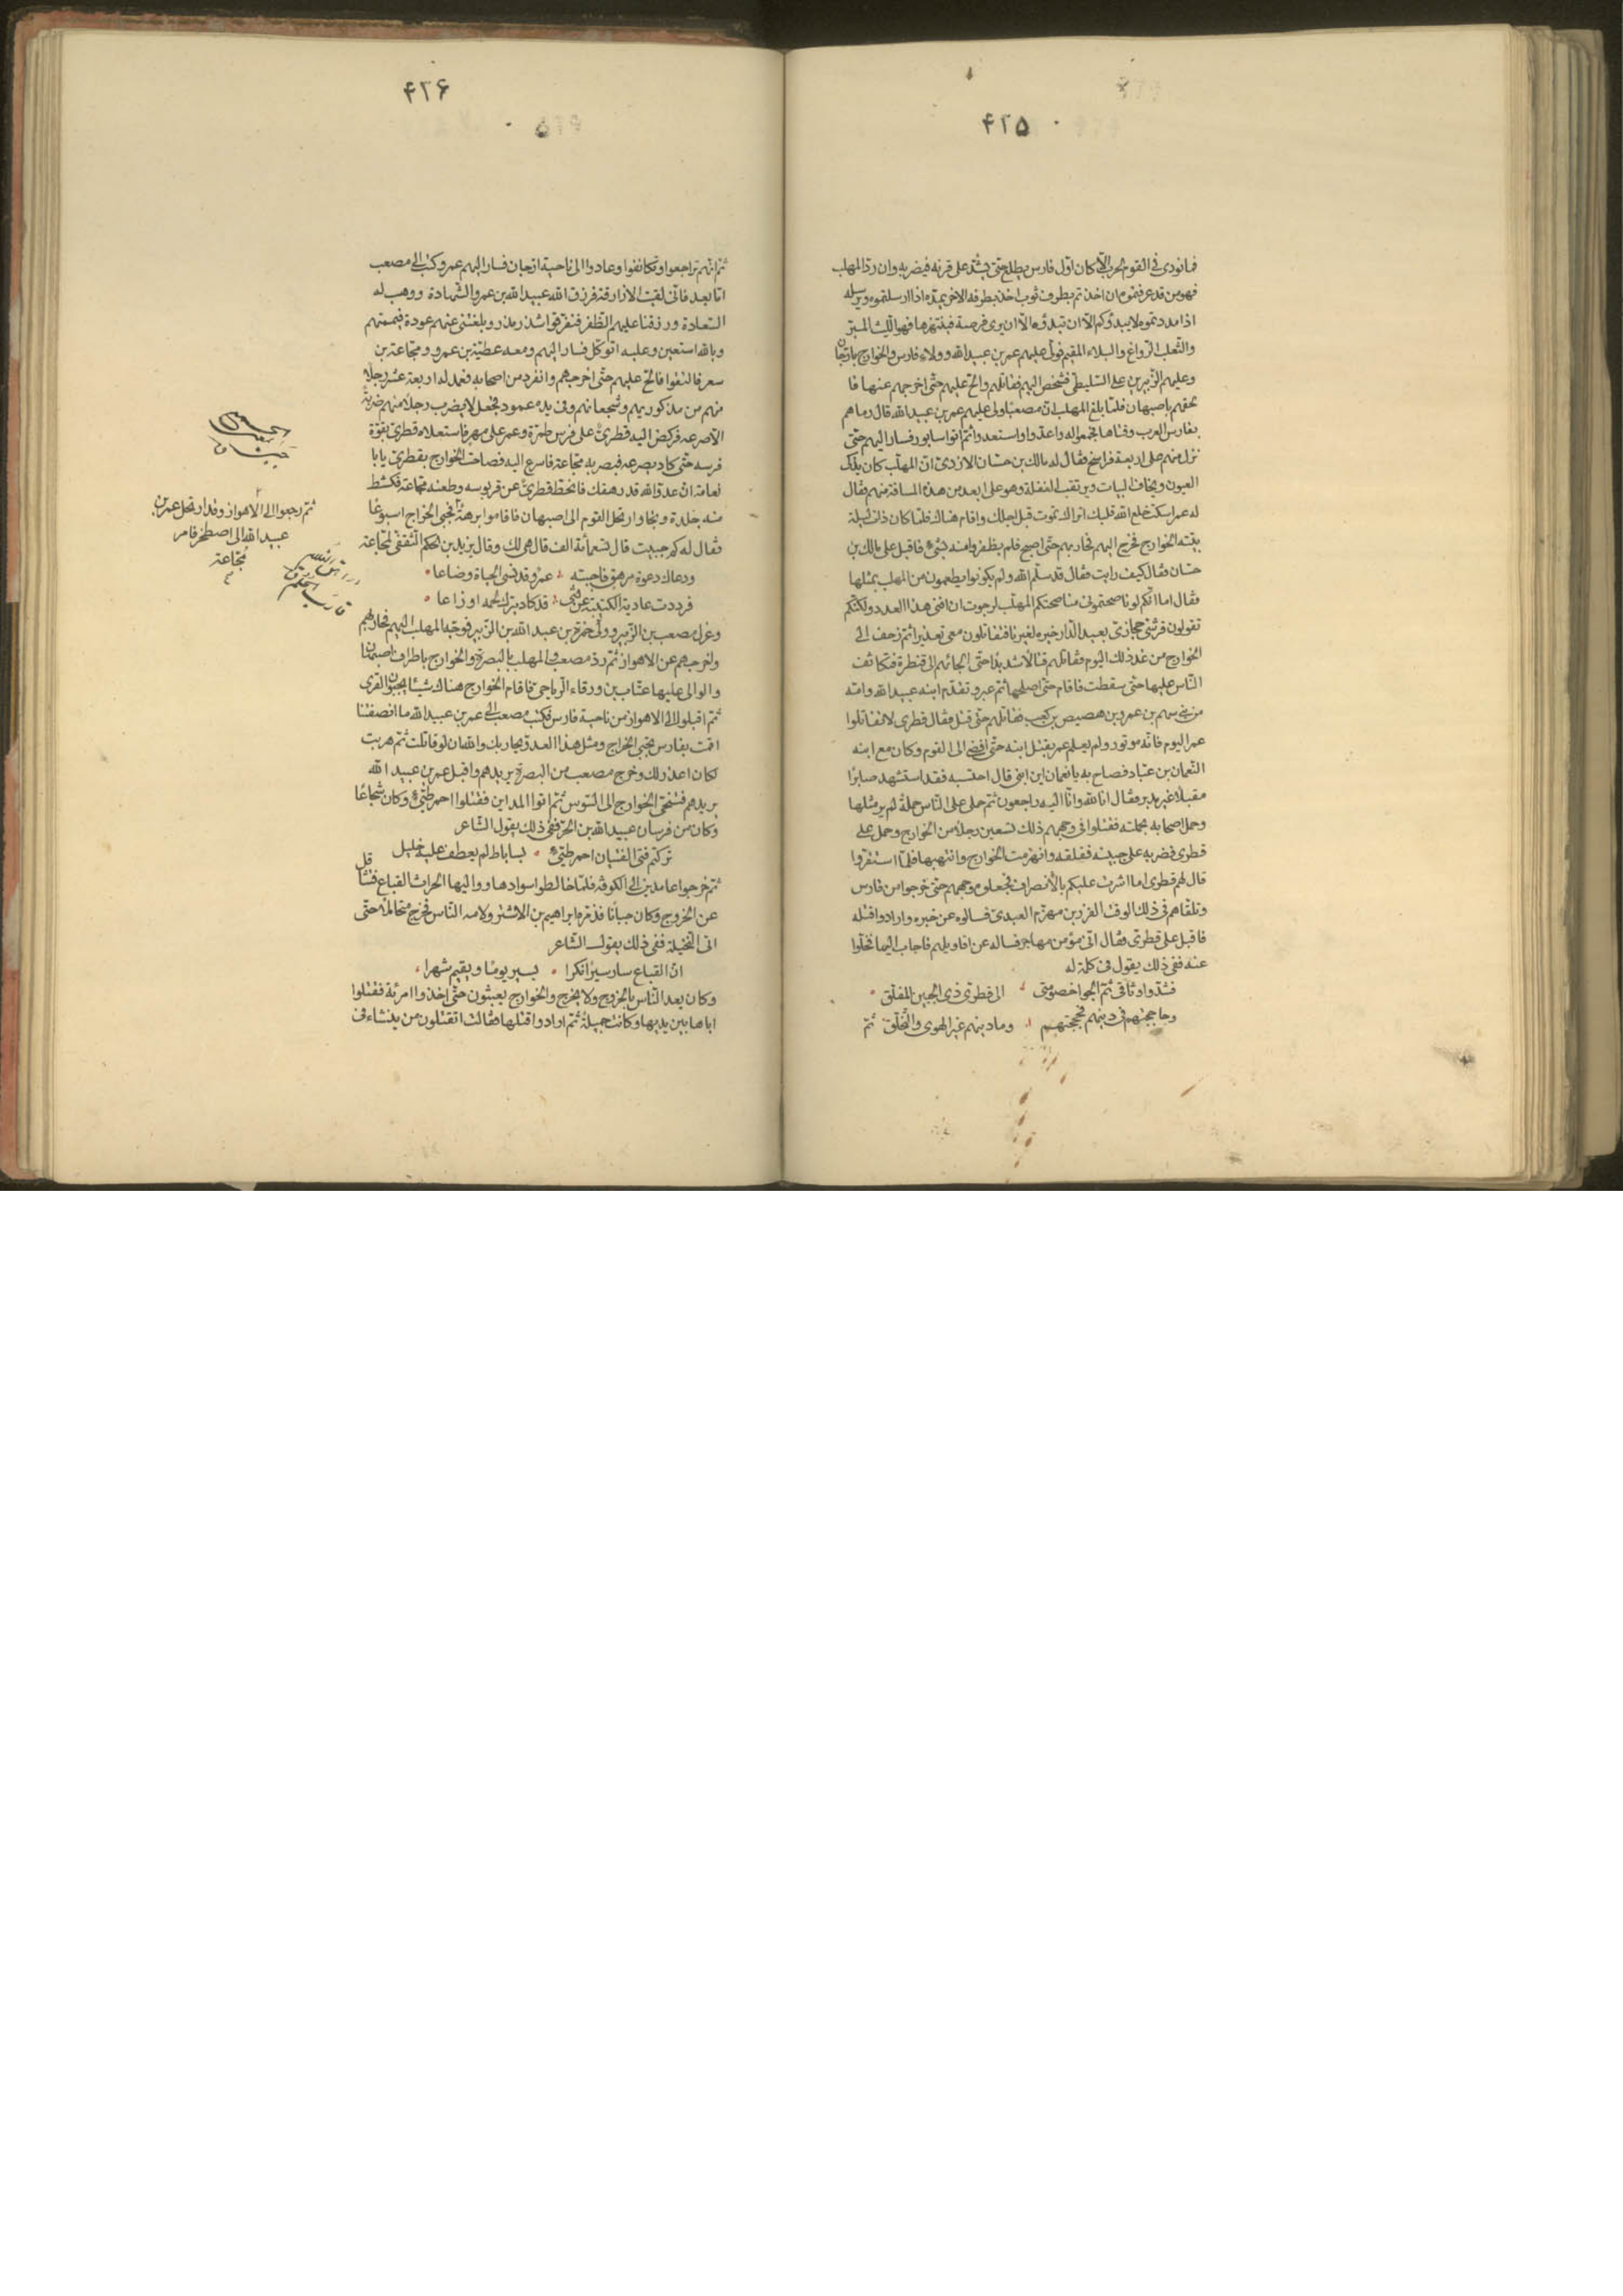 ۴۲۵
فما نودى فى القوم لحرب الا كان اول فارس يطلع حتى يشد على قرنه فيضربه وان رد المهلب
فهو من قد عرفتموه ان اخذتم بطرف ثوب اخذ بطرفه الاخر يمده اذا ارسلتموه ويرسله
اذا مددتموه لا يبدؤكم الا ان تبدؤه الا ان يرى فرصة فينتهزها فهو الليث المبر
والثعلب الرواغ والبلاء المقيم فولى عليهم عمر بن عبيد الله وولاه فارس والخوارج بارجان
وعليهم الزبير بن على السليطى فشخص اليهم فقاتلهم والح عليهم حتى اخرجهم عنها فا
لحقهم باصبهان فلما بلغ المهلب ان مصعبا ولى عليهم عمر بن عبيد الله قال رماهم
بفارس العرب وفتاها فجمعوا له واعدوا واستعدوا ثم اتوا سابور فسار اليهم حتى
نزل منهم على اربعة فراسخ فقال له مالك بن حسان الازدى ان المهلب كان يذكى
العيون ويخاف البيات ويرتقب الغفلة وهو على ابعد من هذه المسافة منهم فقال
له عمر اسكت خلع الله قلبك اتراك تموت قبل اجلك واقام هناك فلما كان ذات ليلة
بيته الخوارج فخرج اليهم فحاربهم حتى اصبح فلم يظفروا منه بشئ فاقبل على مالك بن
حسان فقال كيف رايت فقال قد سلم الله ولم يكونوا يطمعون من المهلب بمثلها
فقال اما انكم لو ناصحتمونى مناصحتكم المهلب لرجوت ان انفى هذا العدو ولكنكم
تقولون قرشى حجازى بعيد الدار خيره لغيرنا فتقاتلون معى تعذيرا ثم زحف الى
الخوارج من غد ذلك اليوم فقاتلهم قتالا شديدا حتى الجائهم الى قنطرة فتكاثف
الناس عليها حتى سقطت فاقام حتى اصلحها ثم عبر وتقدم ابنه عبيد الله وامه
من بنى سهم بن عمرو بن هصيص بن كعب فقاتلهم حتى قتل فقال قطرى لا تقاتلوا
عمر اليوم فانه موتور ولم يعلم عمر بقتل ابنه حتى افضى الى القوم وكان مع ابنه
النعمان بن عباد فصاح به يا نعمان اين ابنى قال احتسبه فقد استشهد صابرا
مقبلا غير مدبر فقال انا لله وانا اليه راجعون ثم حمل على الناس حملة لم ير مثلها
وحمل اصحابه بحملته فقتلوا فى وجههم ذلك تسعين رجلا من الخوارج وحمل على
قطرى فضربه على جبينه ففلقه وانهزمت الخوارج وانتهبها فلما استقروا
قال لهم قطرى اما اشرت عليكم بالانصراف فجعلوه وجههم حتى خرجوا من فارس
وتلقاهم فى ذلك الوقت الفزر بن مهزم العبدى فسالوه عن خبره وارادوا قتله
فاقبل على قطرى وقال انى مؤمن مهاجر فساله عن اقاويلهم فاجاب اليها فخلوا
عنه ففى ذلك يقول فى كلمة له
فشدوا وثاقى ثم الجوا خصومتى الى قطرى ذى الجبين المفلق
وحاججتهم فى دينهم فحججتهم وما دينهم غير الهوى والتخلق ثم
۴۲۶
ثم انهم تراجعوا وتكانفوا وعادوا الى ناحية ارجان فسار اليهم عمر وكتب الى مصعب
اما بعد فانى لقيت الازارقة فرزق الله عبيد الله بن عمر الشهادة ووهب له
السعادة ورزقنا عليهم الظفر فتفرقوا شذر مذر وبلغتنى عنهم عودة فيممتهم
وبالله استعين وعليه اتوكل فسار اليهم ومعه عطية بن عمرو ومجاعة بن
سعر فالتقوا فالح عليهم حتى اخرجهم وانفرد من اصحابه فعمد له اربعة عشر رجلا
منهم من مذكوريهم وشجعانهم وفى يده عمود فجعل لا يضرب رجلا منهم ضربة
الا صرعه فركض اليه قطرى على فرس طمرة وعمر على مهر فاستعلاه قطرى بقوة
فرسه حتى كاد يصرعه فبصر به مجاعة فاسرع اليه فصاحت الخوارج بقطرى يا ابا
نعامة ان عدو الله قد رهقك فانحط قطرى عن قربوسه وطعنه مجاعة فكشط
منه جلدة ونجا وارتحل القوم الى اصبهان فاقاموا برهة فجبى الخراج اسبوعا
فقال له كم جبيت قال تسعمائة الف قال هى لك وقال يزيد بن الحكم الثقفى لمجاعة
ودعاك دعوة مرهق فاجبته عمر وقد نسى الحياة وضاعا
فرددت عادية الكتيبة عن فتى قد كاد يترك لحمه اوزاعا
وعزل مصعب بن الزبير وولى حمزة بن عبد الله بن الزبير فوجه المهلب اليهم فحاربهم
واخرجهم عن الاهواز ثم رد مصعب والمهلب بالبصرة والخوارج باطراف اصبهان
والوالى عليها عتاب بن ورقاء الرياحى فاقام الخوارج هناك شيئا يجبون القرى
ثم اقبلوا الى الاهواز من ناحية فارس فكتب مصعب الى عمر بن عبيد الله ما انصفتنا
اقمت بفارس تجبى الخراج ومثل هذا العدو يحاربك والله لو قاتلت ثم هربت
لكان اعذر لك وخرج مصعب من البصرة يريدهم واقبل عمر بن عبيد الله
يريدهم فتنحى الخوارج الى السوس ثم اتوا المداين فقتلوا احمر طيئ وكان شجاعا
وكان من فرسان عبيد الله بن الحر ففى ذلك يقول الشاعر
تركتم فتى الفتيان احمر طيئ بساباط لم يعطف عليه خليل
ثم خرجوا عامدين الى الكوفة فلما خالطوا سوادها وواليها الحارث القباع فتثاقل
عن الخروج وكان جبانا فذمره ابراهيم بن الاشتر ولامه الناس فخرج متحاملا حتى
اتى النخيلة ففى ذلك يقول الشاعر
ان القباع سار سيرا نكرا يسير يوما ويقيم شهرا
وكان يعد الناس بالخروج ولا يخرج والخوارج يعيثون حتى اخذوا امرئة فقتلوا
اباها بين يديها وكانت جميلة ثم ارادوا قتلها فقالت اتقتلون من ينشاء فى
ثم رجعوا الى الاهواز وقد ارتحل عمر بن
عبيد الله الى اصطخر فامر
مجاعة